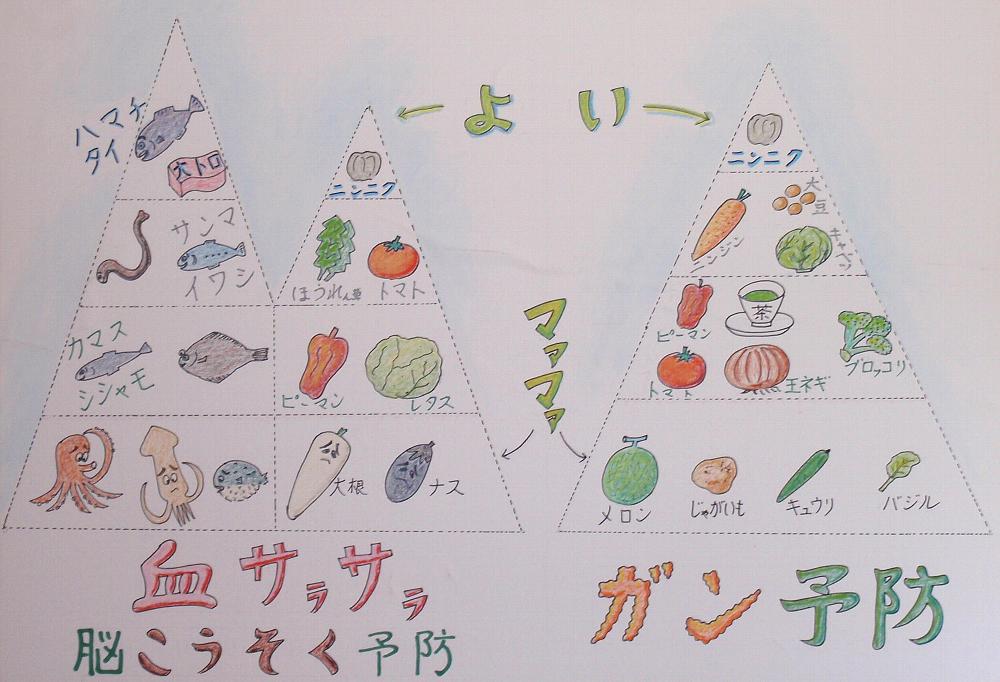 ハマチ
タイ
大トロ
サンマ
イワシ
カマス
シシャモ
ニンニク
ほうれん草
トマト
ピーマン
レタス
大根
ナス
よい
マァマァ
ニンニク
ニンジン
大豆
キャベツ
ピーマン
茶
ブロッコリ
トマト
玉ネギ
メロン
じゃがいも
キュウリ
バジル
血サラサラ
脳こうそく予防
ガン予防